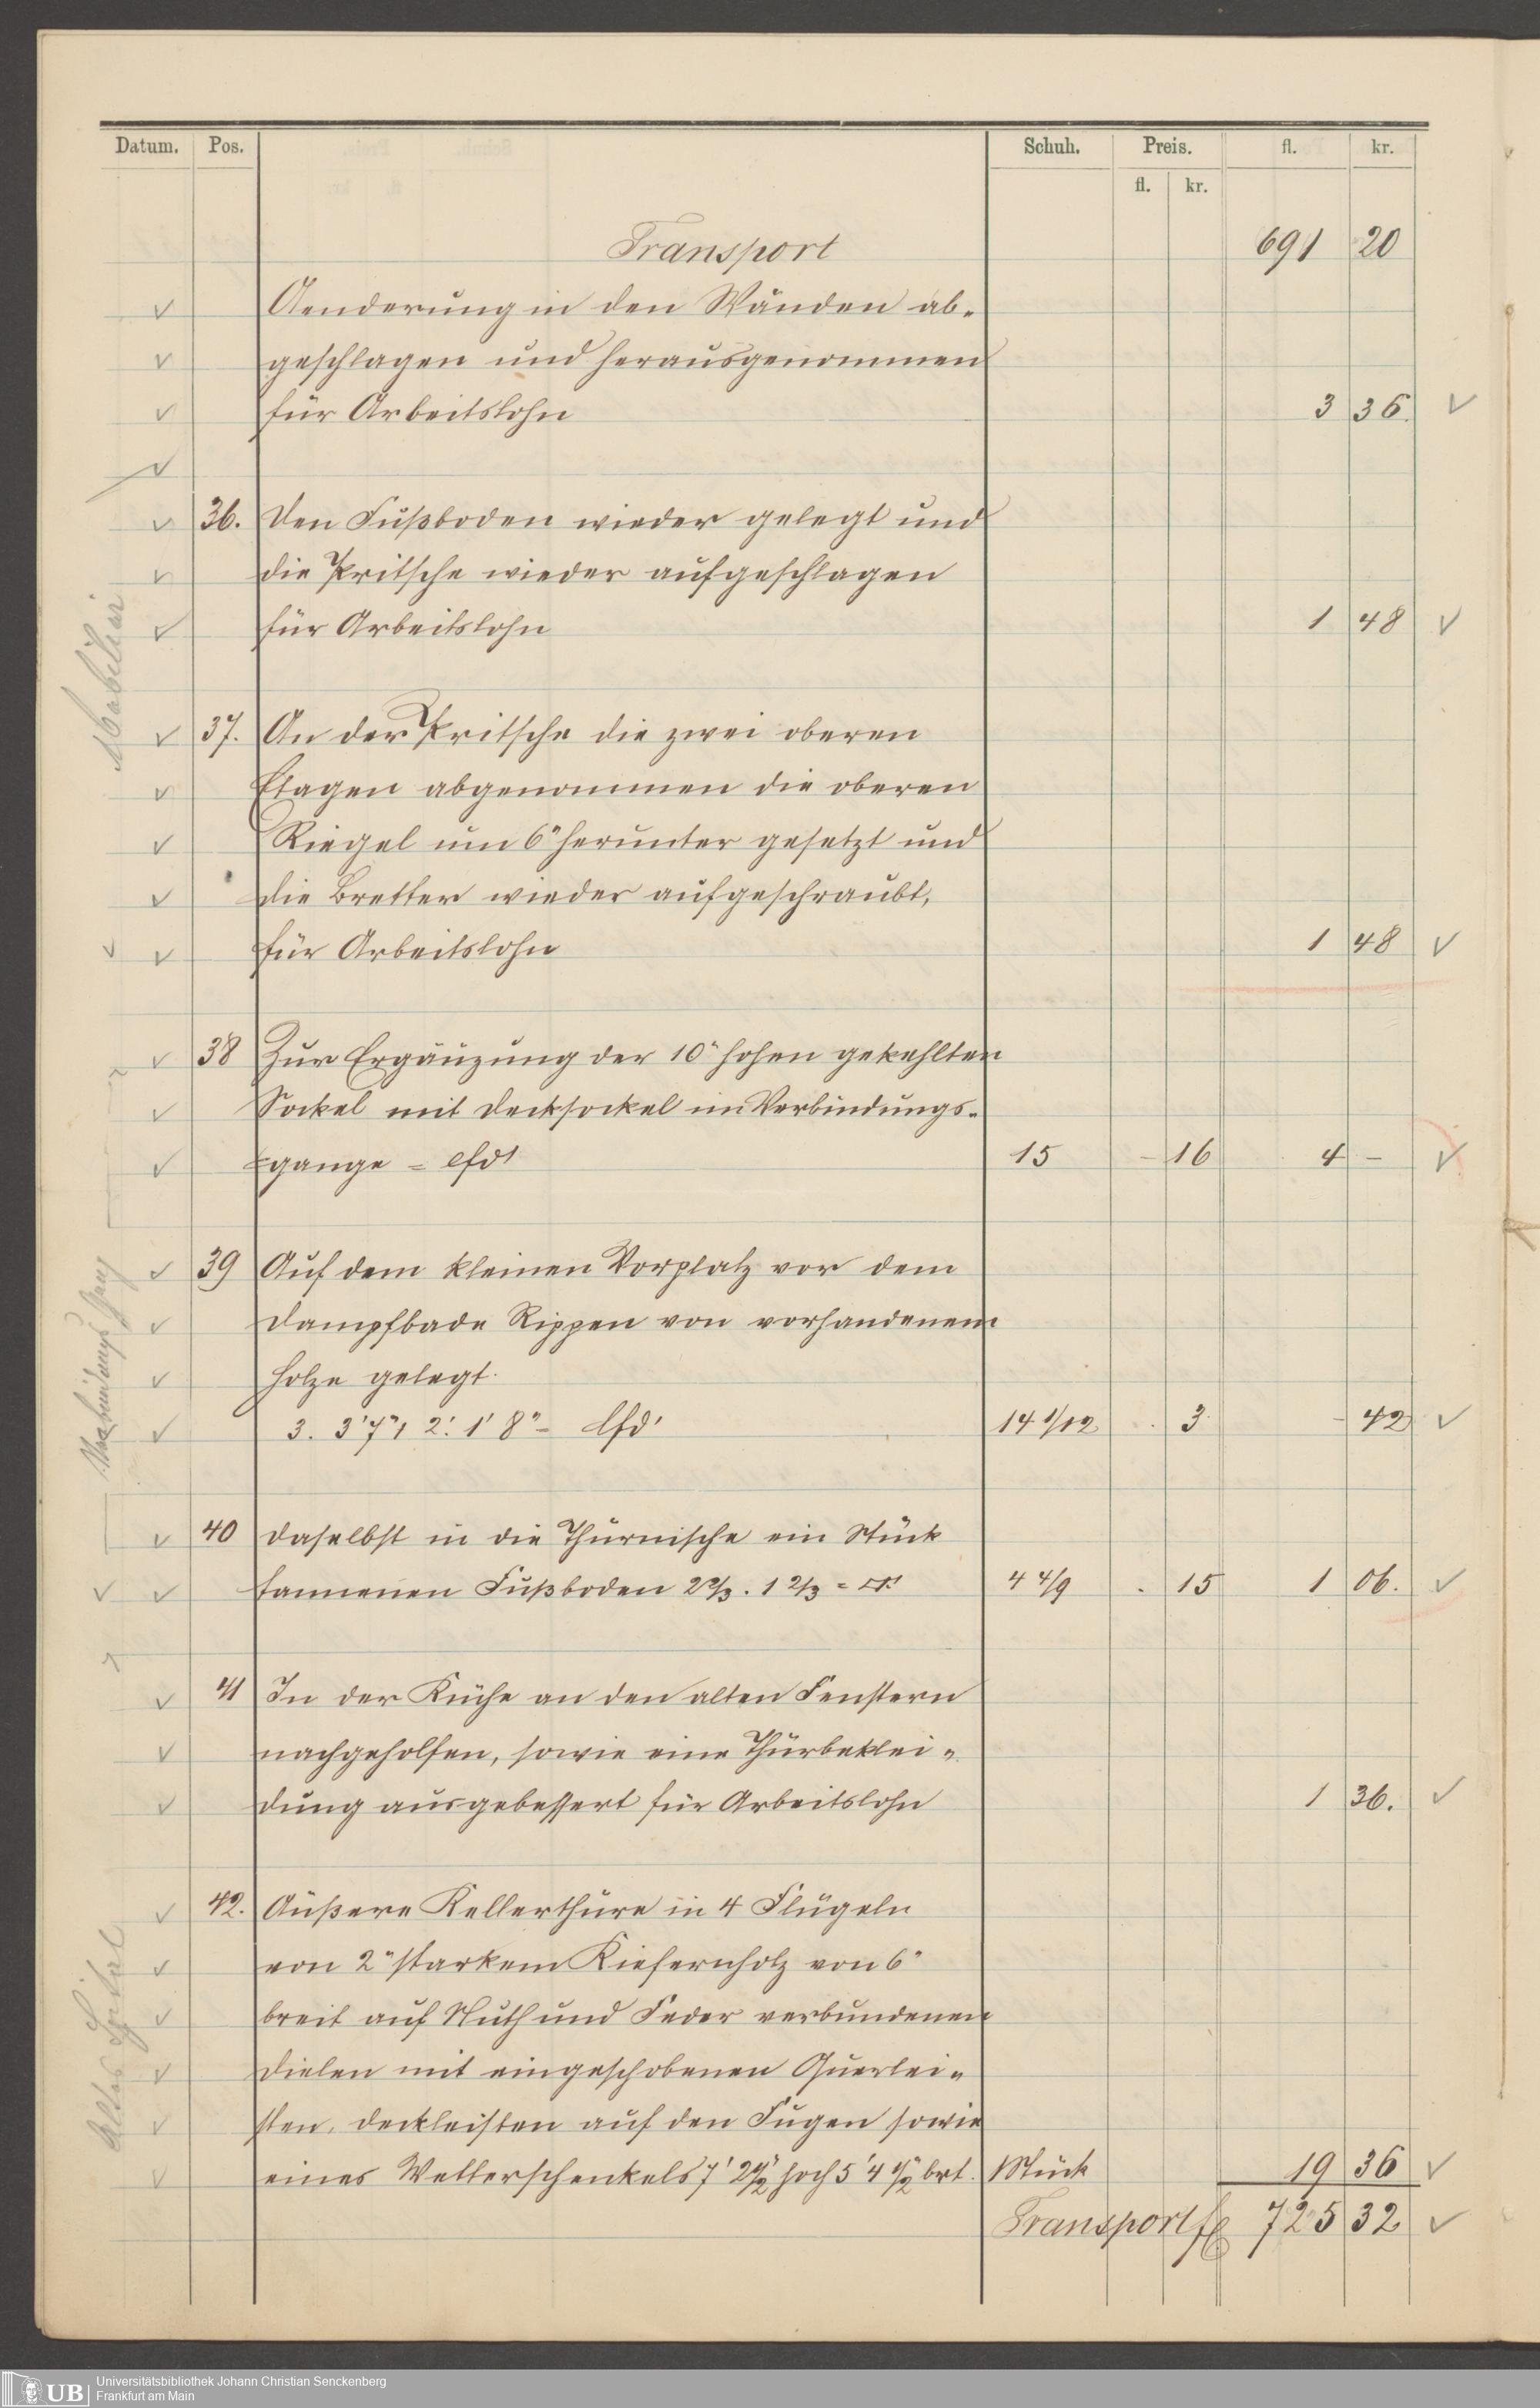 Datum. Pos. Schuh. Preis. fl. kr.
fl. kr.
Transport 691 20
Aenderung in den Wänden ab-
geschlagen und herausgenommen
für Arbeitslohn 3 36.
36. Den Fußboden wieder gelegt und
die Pritsche wieder aufgeschlagen
für Arbeitslohn 1 48
Mobiliar
37. An der Pritsche die zwei oberen
Etagen abgenommen die oberen
Riegel um 6" herunter gesetzt und
die Bretter wieder aufgeschraubt,
für Arbeitslohn 1 48
38 Zur Ergänzung der 10" hohen gekehlten
Sockel mit Decksockel im Verbindungs-
gange = lfd' 15 - 16 4 -
Verbindungs Gang
39 Auf dem kleinen Vorplatz vor dem
Dampfbade Rippen von vorhandenem
Holze gelegt.
3. 3' 7", 2. 1' 8" = lfd' 14 1/12 . 3 - 42
40 Daselbst in die Thürnische ein Stück
tannenen Fußboden 2 2/3 . 1 2/3 = □' 4 4/9 . 15 1 06.
41 In der Küche an den alten Fenstern
nachgeholfen, sowie eine Thürbeklei-
dung ausgebessert für Arbeitslohn 1 36.
Altes Spital
42. Äußere Kellerthüre in 4 Flügeln
von 2" starkem Kiefernholz von 6"
breit auf Nuth und Feder verbundenen
Dielen mit eingeschobenen Querlei-
sten, Deckleisten auf den Fugen sowie
eines Wetterschenkels 7' 2 1/2" hoch 5' 4 1/2" brt. 1 Stück 19 36
Transport fl 725 32
UB Universitätsbibliothek Johann Christian Senckenberg
Frankfurt am Main